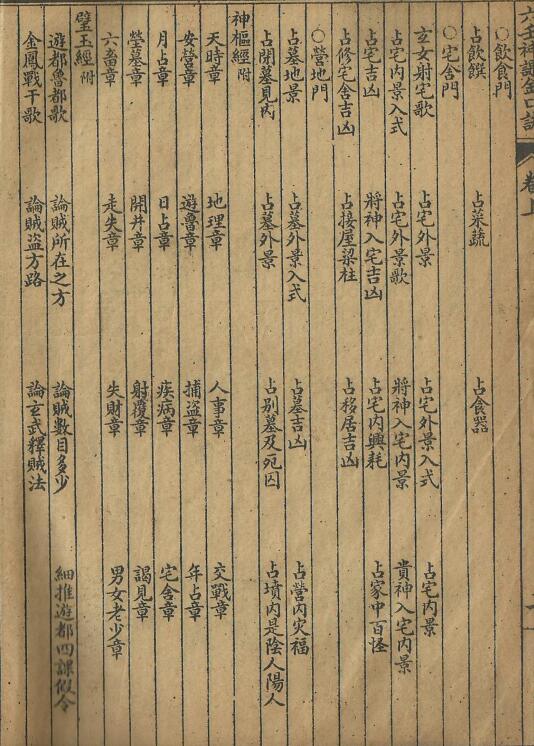 六壬神課金口訣
卷上
○飲食門
占飲饌 占菜蔬 占食器
○宅舍門
玄女射宅歌 占宅外景 占宅外景入式 占宅內景
占宅內景入式 占宅外景歌 將神入宅內景 貴神入宅內景
占宅吉凶 將神入宅吉凶 占宅內興耗 占家中百怪
占修宅舍吉凶 占接屋梁柱 占移居吉凶
○營地門
占墓地景 占墓外景入式 占墓吉凶 占營內灾福
占開墓見丙 占墓外景 占別墓及兇囚 占墳內是陰人陽人
神樞經附
天時章 地理章 人事章 交戰章
安營章 遊魯章 捕盜章 年占章
月占章 日占章 疾病章 宅舍章
塋墓章 開井章 射覆章 謁見章
六畜章 走失章 失財章 男女老少章
璧玉經附
遊都魯都歌 論賊所在之方 論賊數目多少 細推遊都四課假令
金鳳戰干歌 論賊盜方路 論玄武釋賊法